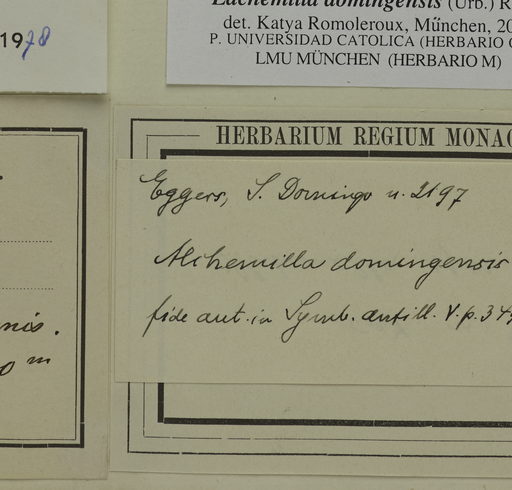 Lachemilla domingensis (Urb.) R
det. Katya Romoleroux, München, 20
P. UNIVERSIDAD CATOLICA (HERBARIO
LMU MÜNCHEN (HERBARIO M)
1978
HERBARIUM REGIUM MONAC
Eggers, S. Domingo n. 2197
Alchemilla domingensis
fide aut. in Symb. antill. V. p. 34
nis.
0 m